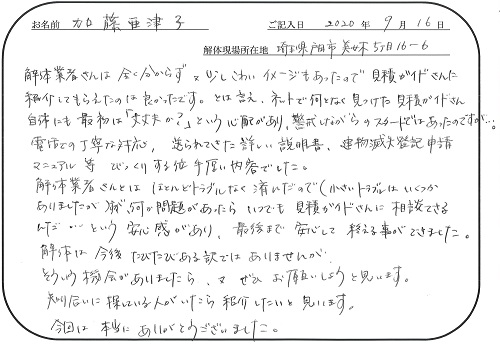 お名前 加藤亜津子 ご記入日 2020 年 9 月 16 日
解体現場所在地 埼玉県戸田市美女木5丁目16-6
解体業者さんは全く分からず 又少しこわいイメージもあったので見積ガイドさんに
紹介してもらえたのは良かったです。とは言え、ネットで何となく見つけた見積ガイドさん
自体にも最初は「大丈夫か?」という心配があり、警戒しながらのスタートではあったのですが…。
電話での丁寧な対応、送られてきた詳しい説明書、建物滅失登記申請
マニュアル等 びっくりする位手厚い内容でした。
解体業者さんとは ほとんどトラブルなく済んだので(小さいトラブルはいくつか
ありましたが)何か問題があったら いつでも見積ガイドさんに相談できる
んだ…という安心感があり、最後まで安心して終える事ができました。
解体は今後たびたびある訳ではありませんが、
そういう機会がありましたら、又 ぜひお願いしようと思います。
知り合いに探している人がいたら紹介したいと思います。
今回は本当にありがとうございました。